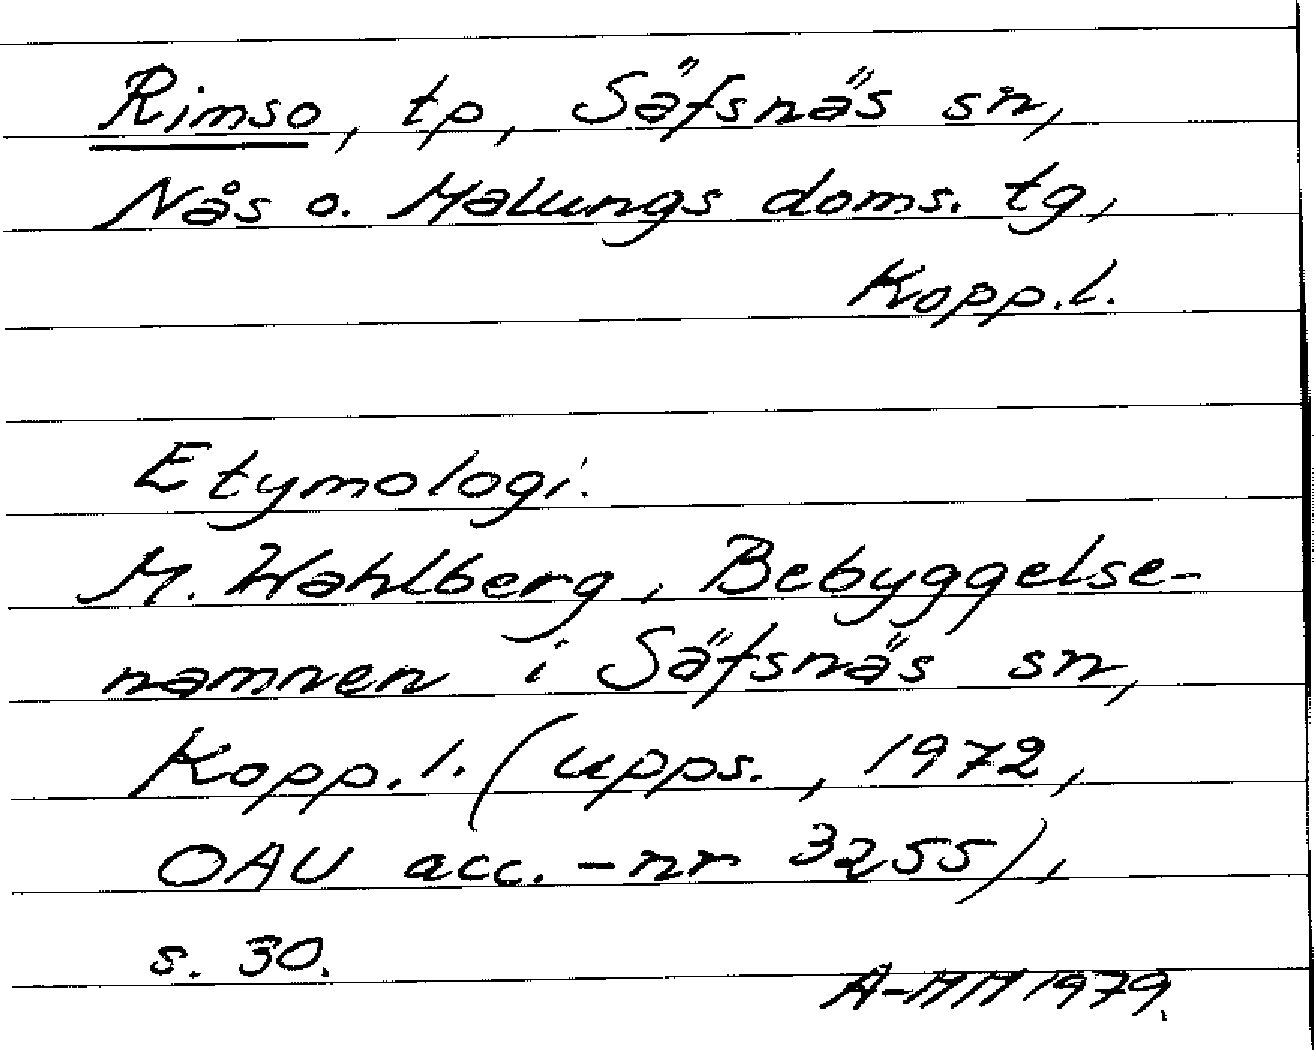 Rimso, tp, Säfsnäs sn,
Nås o. Malungs doms. tg,
Kopp.l.
Etymologi.
M. Wahlberg, Bebyggelse-
namnen i Säfsnäs sn,
Kopp.l. (upps., 1972,
OAU acc.-nr 3255),
s. 30.
A-MM 1979.